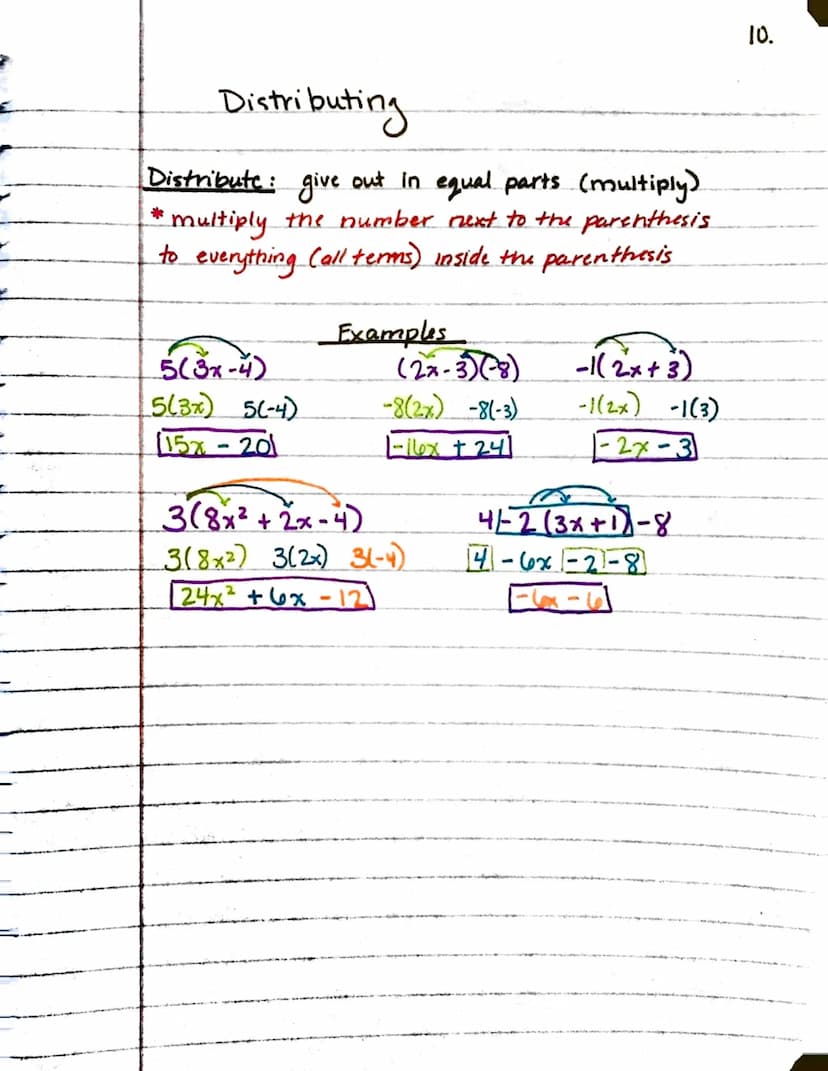 10.
Distributing
Distribute: give out in equal parts (multiply)
* multiply the number next to the parenthesis
to everything (all terms) inside the parenthesis
Examples
5(3x-4) (2x-3)(-8) -1(2x+3)
5(3x) 5(-4) -8(2x) -8(-3) -1(2x) -1(3)
15x - 20 -16x + 24 -2x - 3
3(8x² + 2x - 4) 4-2(3x+1)-8
3(8x²) 3(2x) 3(-4) 4 - 6x - 2 - 8
24x² + 6x - 12 -6x - 6